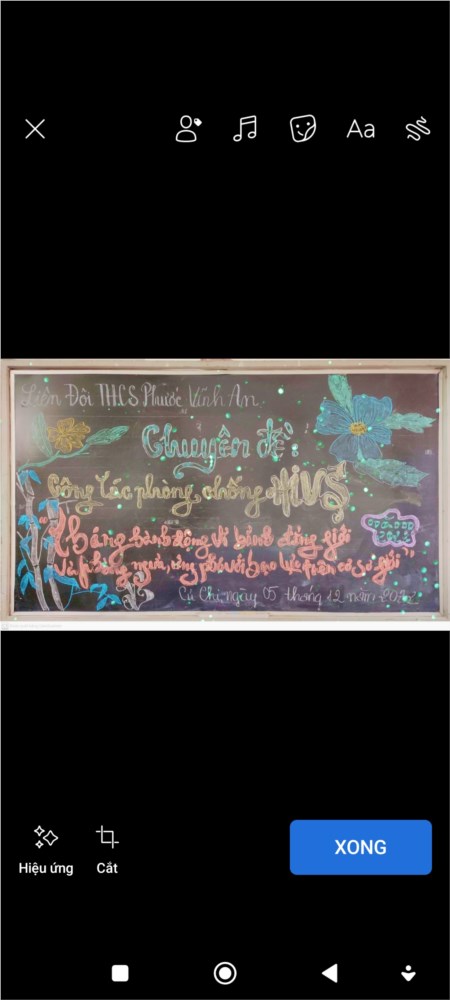 Aa
Liên Đội THCS Phước Vĩnh An
Chuyên đề:
Công tác phòng, chống HIV
Tháng hành động vì bình đẳng giới
và phòng ngừa, ứng phó với bạo lực trên cơ sở giới"
Củ Chi, ngày 05 tháng 12 năm
Hiệu ứng
Cắt
XONG